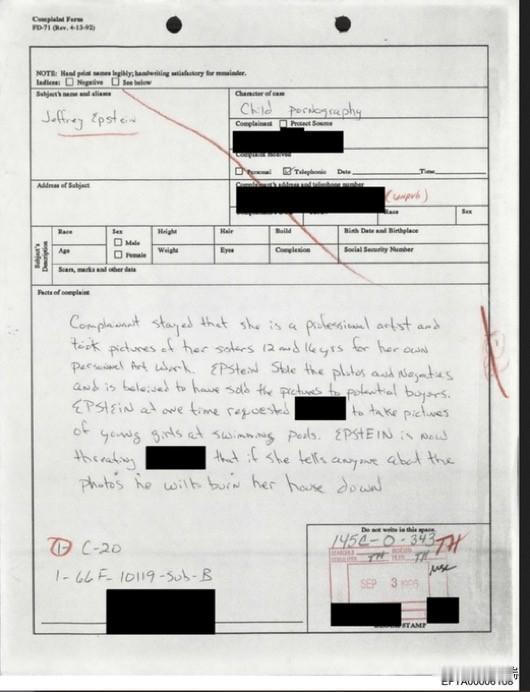 Complaint Form
FD-71 (Rev. 4-13-92)
NOTE: Hand print names legibly; handwriting satisfactory for remainder.
Indices: Negative See below
Subject's name and aliases
Jeffrey Epstein
Character of case
Child pornography
Complainant Protect Source
Complaint received
Personal Telephonic Date Time
Address of Subject
Complainant's address and telephone number
(unpub)
Race Sex
Subject's Description
Race Sex Height Hair Build Birth Date and Birthplace
Male
Female
Age Weight Eyes Complexion Social Security Number
Scars, marks and other data
Facts of complaint
Complainant stayed that she is a professional artist and
took pictures of her sisters 12 and 16 yrs for her own
personal Art work. EPSTEIN Stole the photos and Negatives
and is beleived to have sold the pictures to potential buyers.
EPSTEIN at one time requested to take pictures
of young girls at swimming pools. EPSTEIN is now
threating that if she tells anyone about the
photos he will burn her house down
1- C-20
1-66F-10119-Sub-B
Do not write in this space.
145C-0-343
TH
SEARCHED INDEXED
SERIALIZED TH FILED TH
SEP 3 1996
STAMP
EFTA00006108